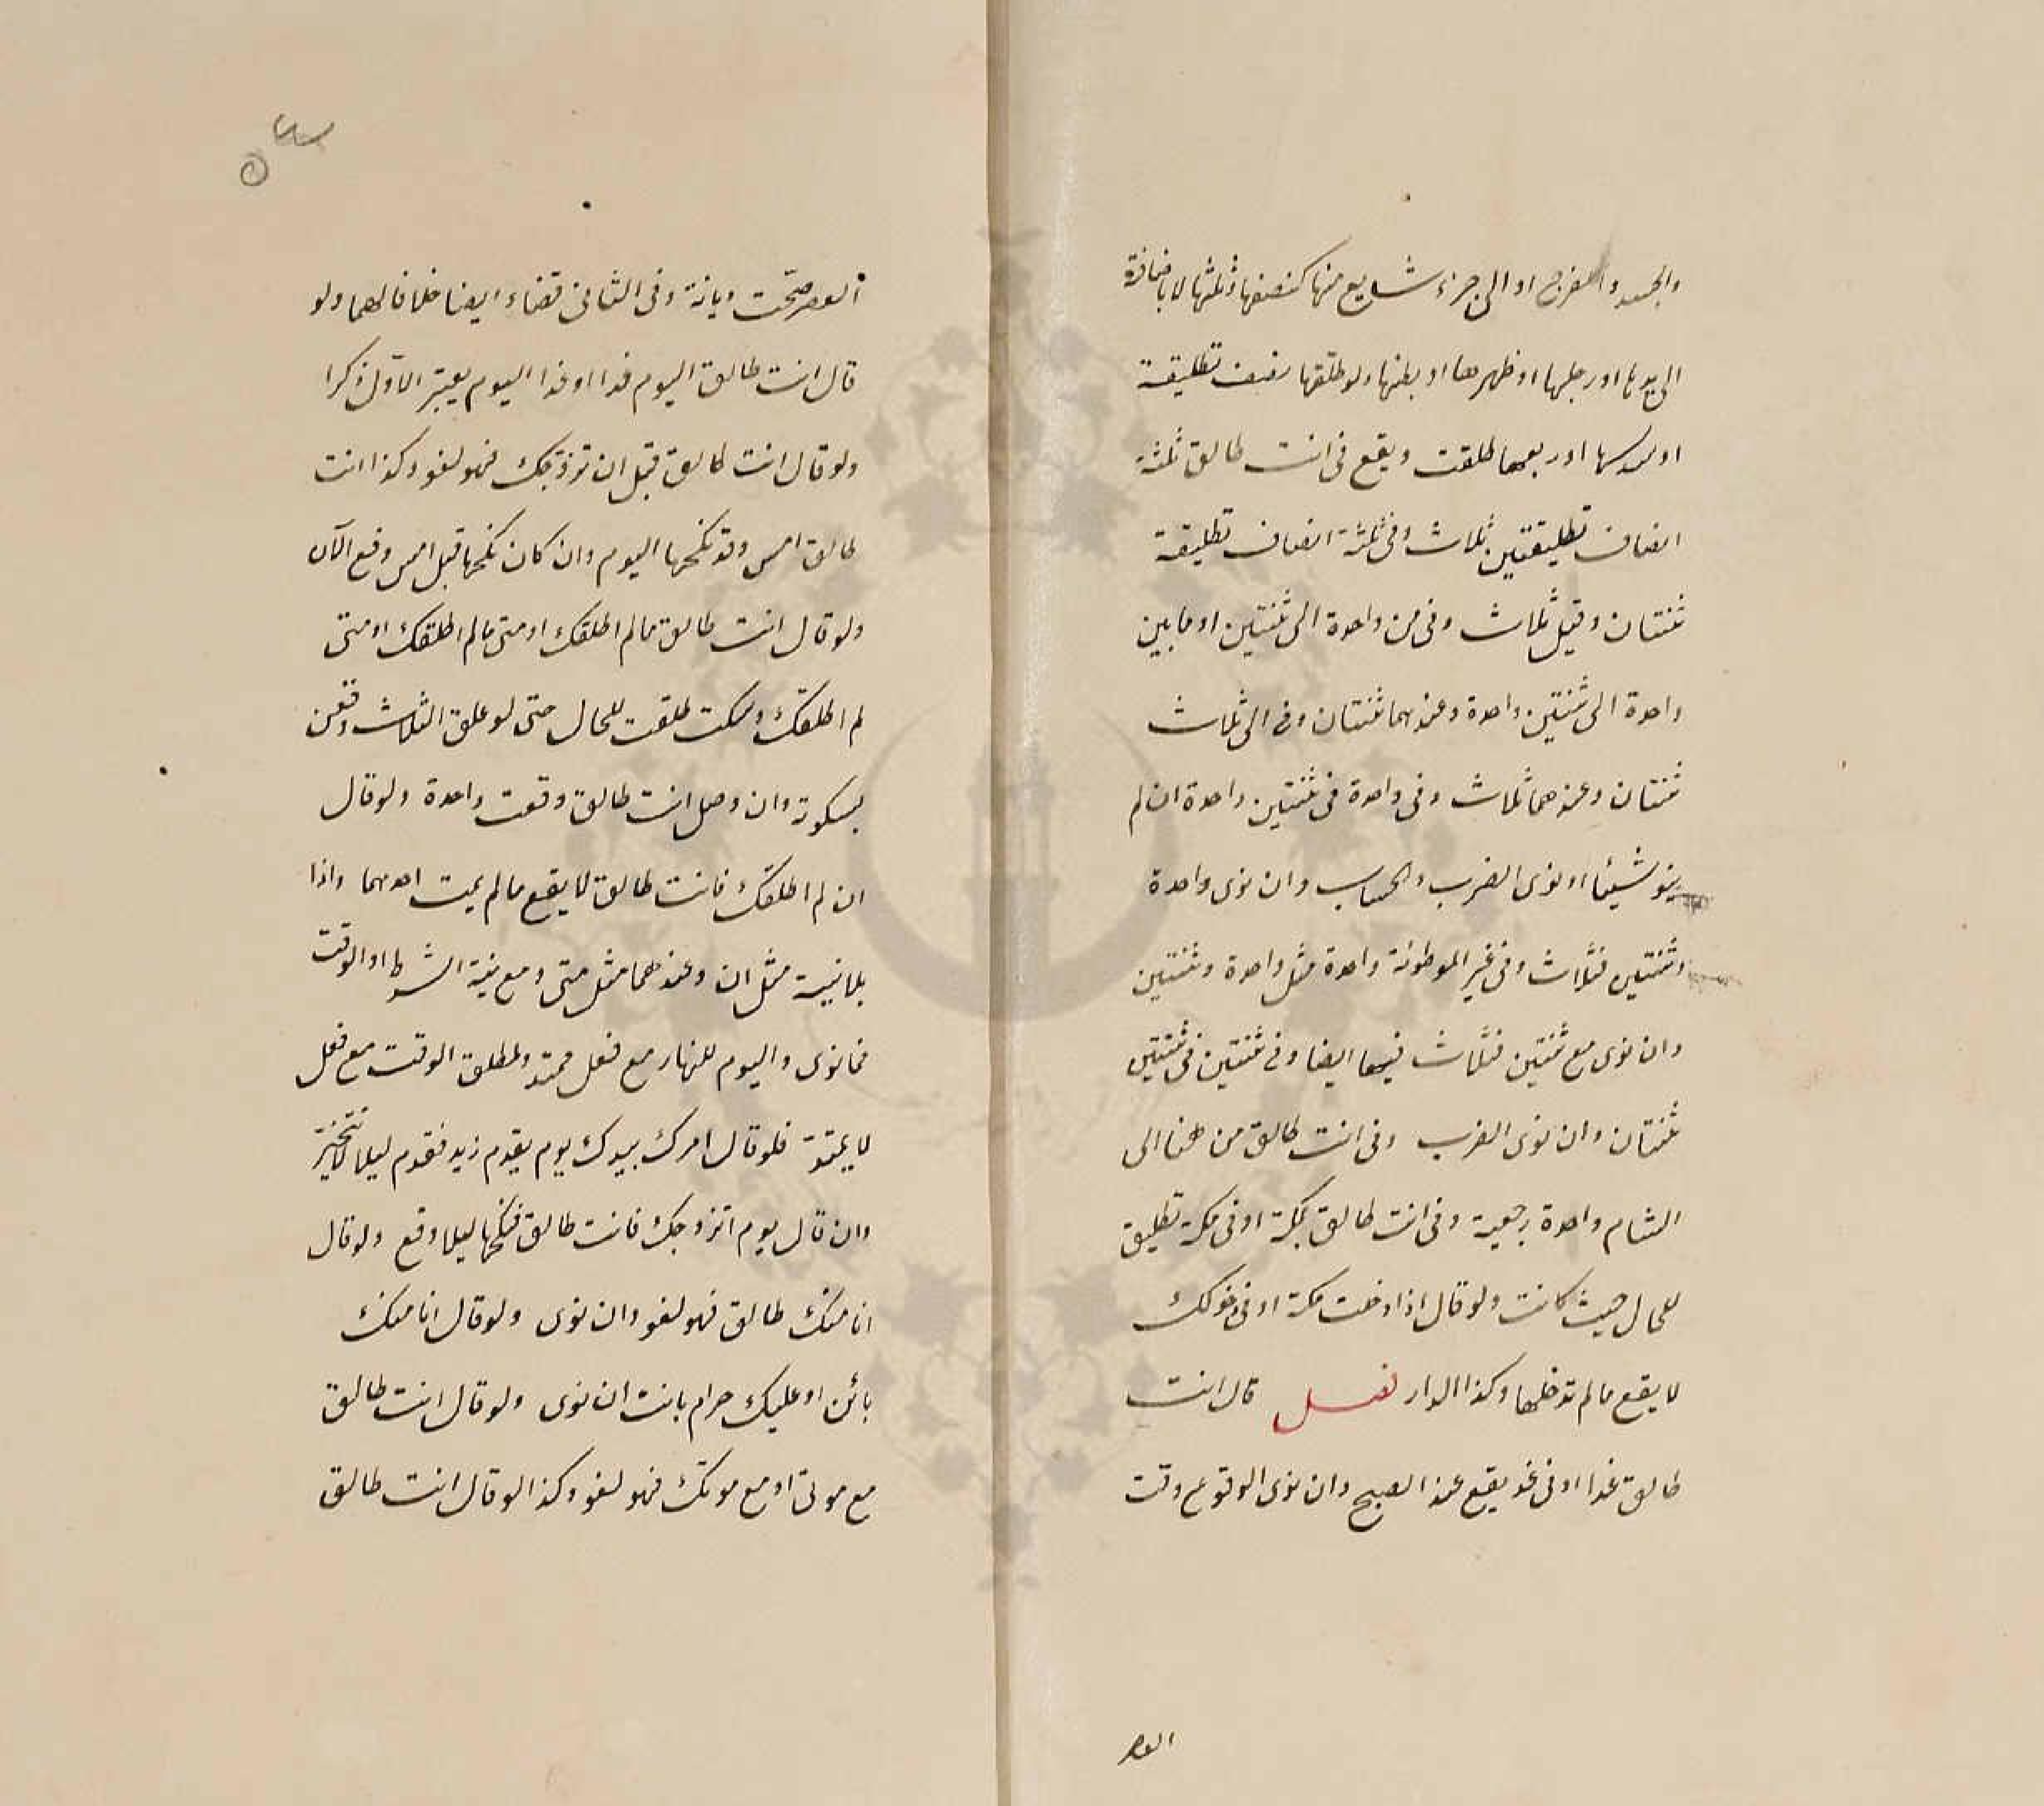 والجسد والفرج او الى جزء شايع منها كنصفها وثلثها لا باضافة
الى يدها او رجلها او ظهرها او بطنها ولو طلقها نصف تطليقة
او سدسها او ربعها طلقت ويقع فى انت طالق ثلثة
انصاف تطليقتين ثلاث وفى ثلثة انصاف تطليقة
ثنتان وقيل ثلاث وفى من واحدة الى ثنتين او ما بين
واحدة الى ثنتين واحدة وعندهما ثنتان وفى الى ثلاث
ثنتان وعندهما ثلاث وفى واحدة فى ثنتين واحدة ان لم
ينو شيئا او نوى الضرب والحساب وان نوى واحدة
وثنتين فثلاث وفى غير الموطوئة واحدة مثل واحدة وثنتين
وان نوى مع ثنتين فثلاث فيها ايضا وفى ثنتين فى ثنتين
ثنتان وان نوى الضرب وفى انت طالق من هنا الى
الشام واحدة رجعية وفى انت طالق بمكة او فى مكة تطليق
للحال حيث كانت ولو قال اذا دخلت مكة او فى دخولك
لا يقع ما لم تدخلها وكذا الدار فصل قال انت
طالق غدا او فى غد يقع عند الصبح وان نوى الوقوع وقت
العصر
٥٤
العصر صحت ديانة وفى الثانى قضاء ايضا خلافا لهما ولو
قال انت طالق اليوم غدا او غدا اليوم يعتبر الاول ذكرا
ولو قال انت طالق قبل ان تزوجك فهو لغو وكذا انت
طالق امس وقد نكحها اليوم وان كان نكحها قبل امس وقع الآن
ولو قال انت طالق ما لم اطلقك او متى ما لم اطلقك او متى
لم اطلقك وسكت طلقت للحال حتى لو علق الثلاث وقعن
بسكوته وان وصل انت طالق وقعت واحدة ولو قال
ان لم اطلقك فانت طالق لا يقع ما لم يمت احدهما واذا
بلا نية مثل ان وعندهما مثل متى ومع نية الشرط او الوقت
فما نوى واليوم للنهار مع فعل ممتد ولمطلق الوقت مع فعل
لا يمتد فلو قال امرك بيدك يوم يقدم زيد فقدم ليلا لا تتخير
وان قال يوم اتزوجك فانت طالق فنكحها ليلا وقع ولو قال
انا منك طالق فهو لغو وان نوى ولو قال انا منك
بائن او عليك حرام بانت ان نوى ولو قال انت طالق
مع موتى او مع موتك فهو لغو وكذا لو قال انت طالق